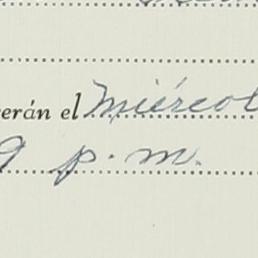 erán el Miércol
9 p. m.